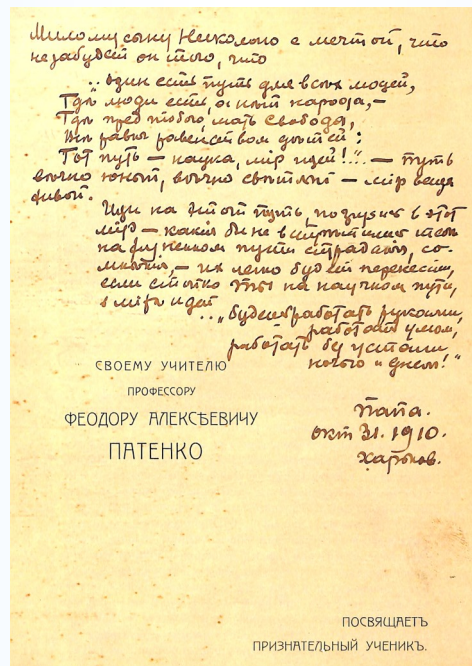 Милому сыну Николаю с мечтой, что
не забудет он того, что
„Один есть путь для всех людей,
Где люди есть, а нет народа,—
Где пред тобою, мать свобода,
Все равны равенством детей;
Тот путь — наука, мiр идей!"— путь
вѣчно юный, вѣчно свѣтлый — мiр вѣчно
живой.
Иди на этот путь, погрузись в этот
мiр — какiя бы не встретились тебѣ
на жизненном пути страданiя, со-
мнѣнiя, — их легко будет перенести,
если стойко ты на научном пути,
в мiрѣ идей
..„будешь работать руками,
работать умом,
работать без устали
ночью и днем!"
СВОЕМУ УЧИТЕЛЮ
ПРОФЕССОРУ
ФЕОДОРУ АЛЕКСѢЕВИЧУ
ПАТЕНКО
Папа.
Окт 31. 1910.
Харьков.
ПОСВЯЩАЕТЪ
ПРИЗНАТЕЛЬНЫЙ УЧЕНИКЪ.